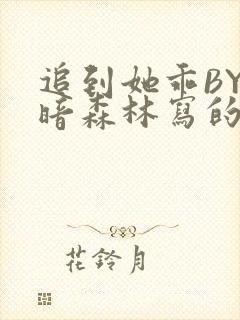 追到她乖BY
暗森林寫的
花鈴月